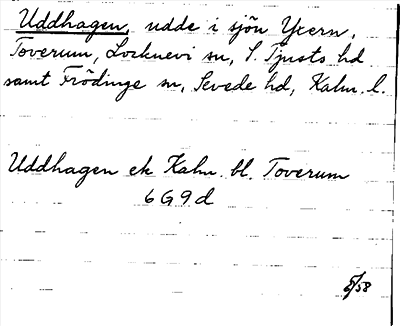 Uddhagen, udde i sjön Yxern,
Toverum, Locknevi sn, S. Tjusts hd
samt Frödinge sn, Sevede hd, Kalm. l.
Uddhagen ek Kalm. bl. Toverum
6G9d
5/58